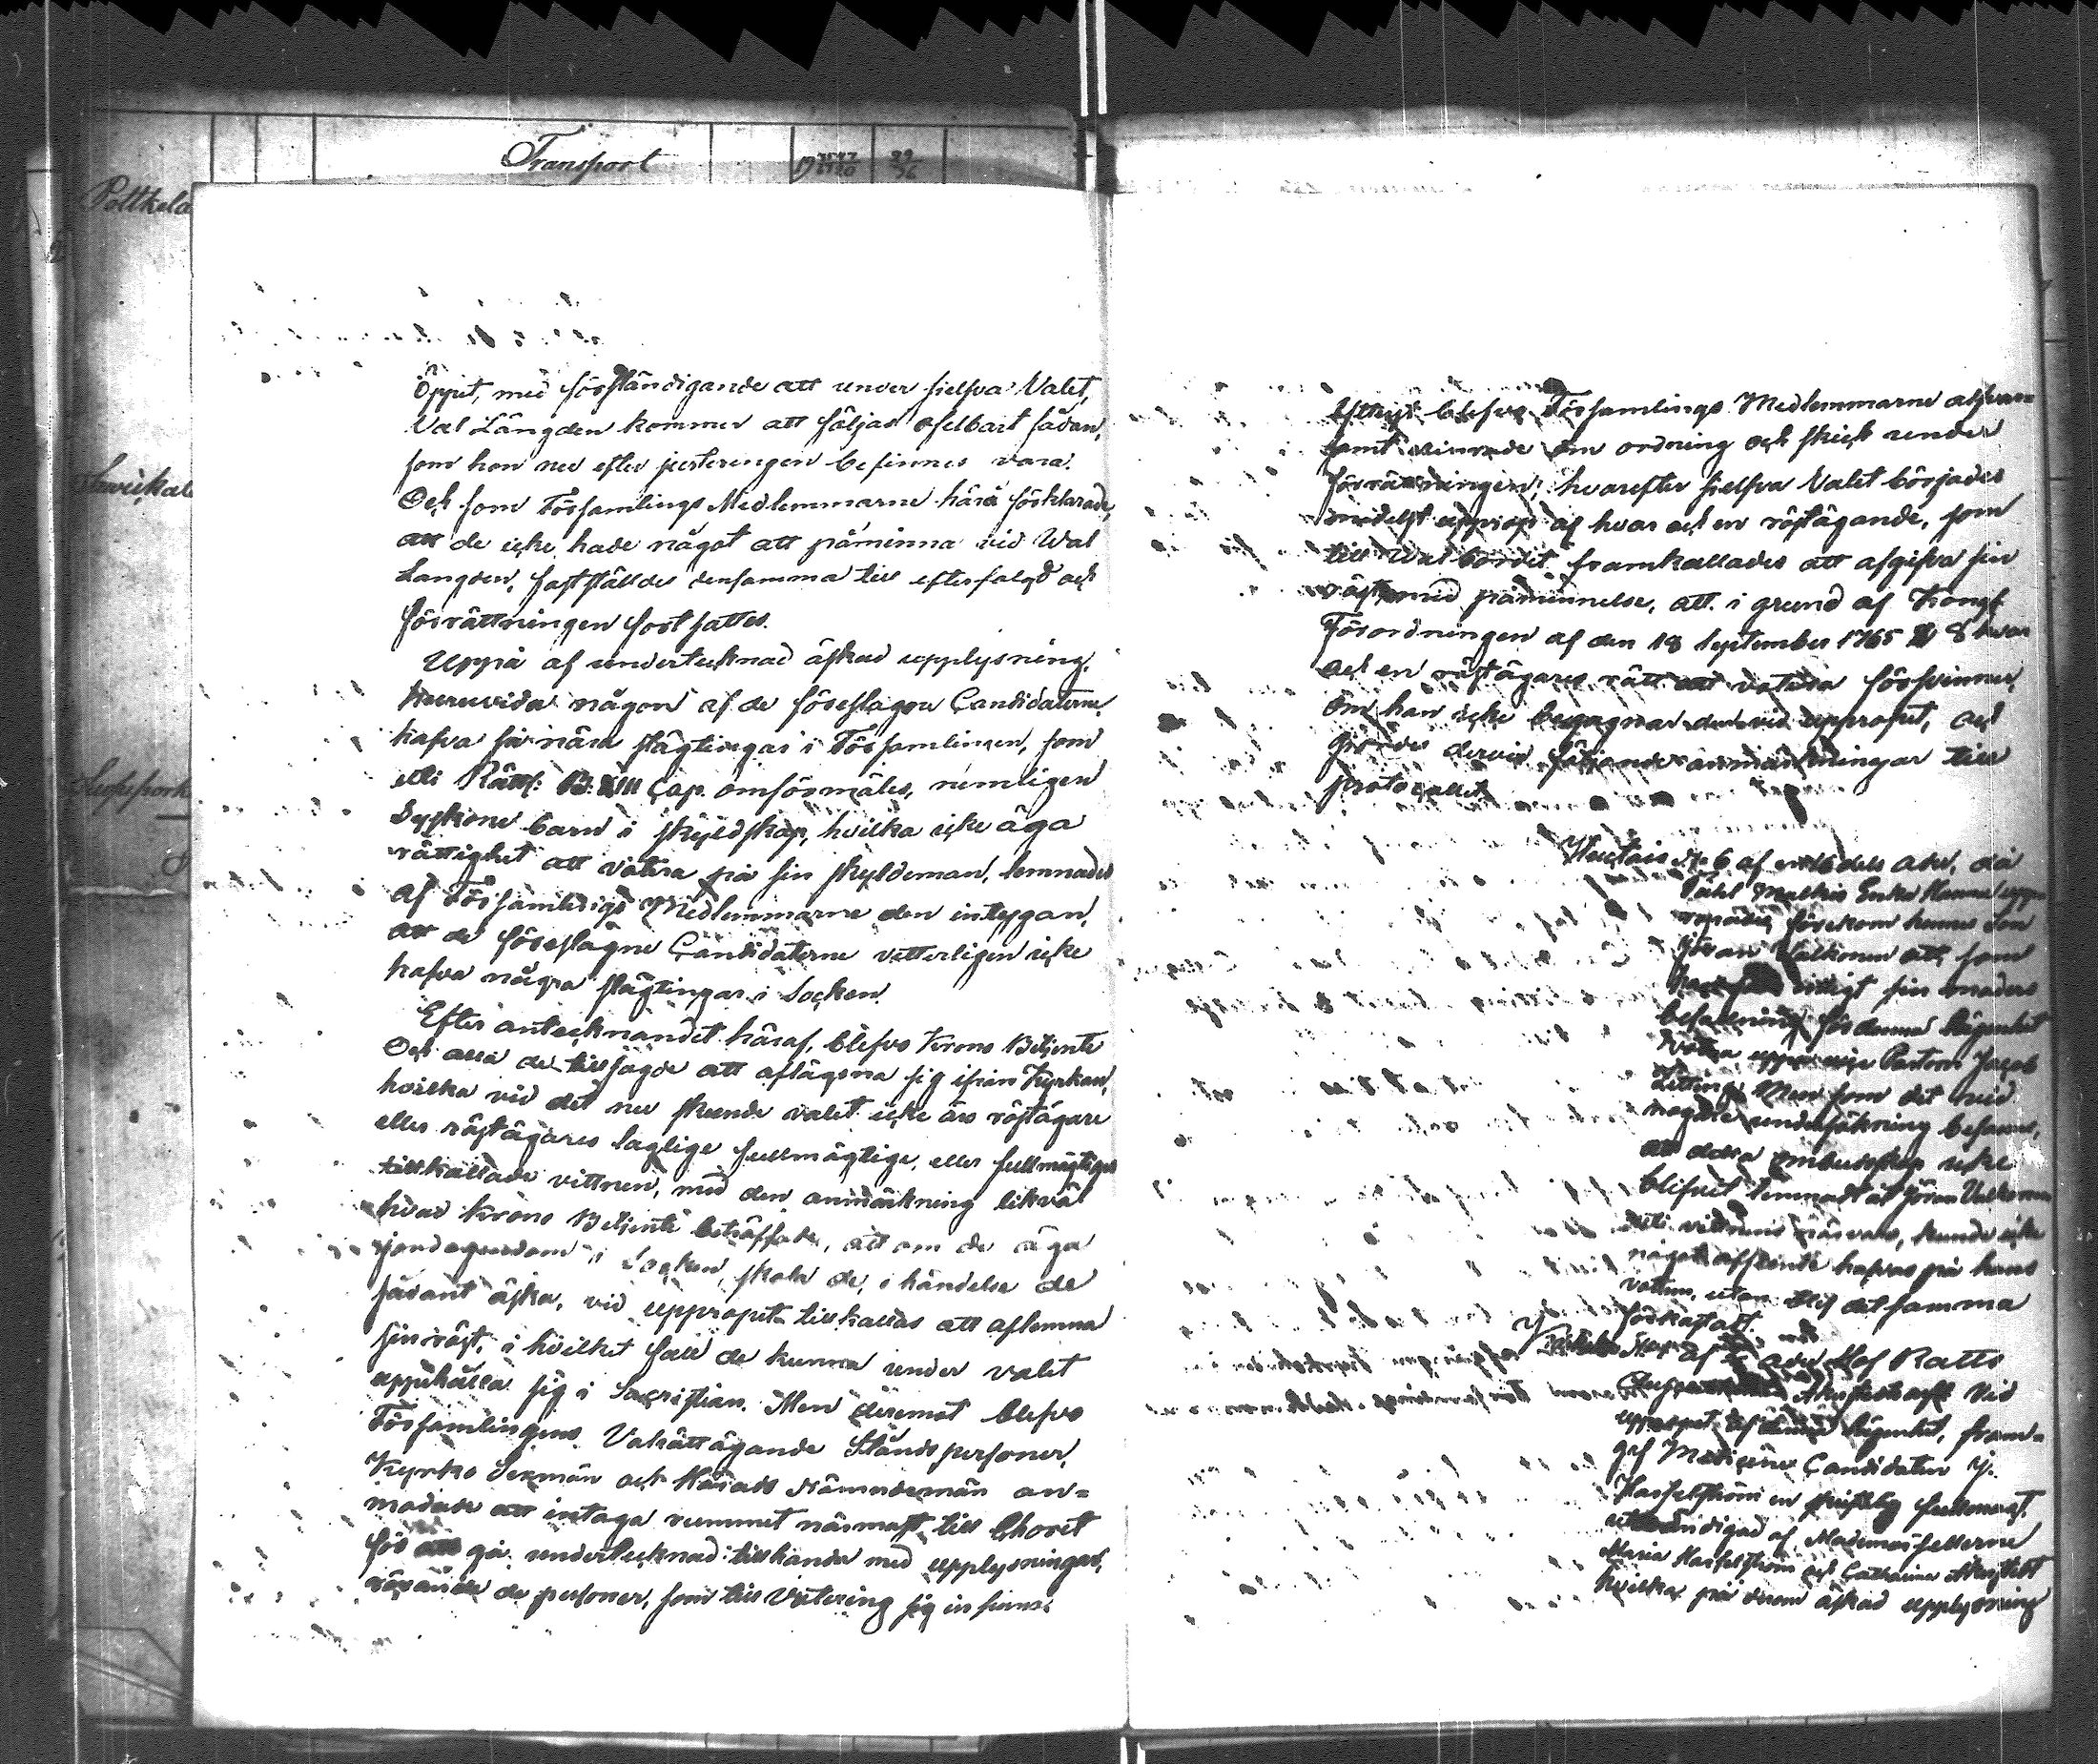 Transport
Pöttkela
Öppet, med förständigande att under sielfva Valet,
Val Längden kommer att följas ofelbart sådan,
som hon nu efter justeringen befinnes vara.
Och som Församlings Medlemmarne härå förklarade,
att de icke hade något att påminna vid Wal
Langden, fastställdes densamma till efterfölgd och
förrättningen fortsattes.
Uppå af undertecknad äskad upplysning,
Huruvida någon af de föreslagne Candidaterne
hafva så nära slägtingar i Församlingen, som
uti Rätts: B: XIII Cap. omförmäles, nemligen
Syskone barn i skyldskap, hvilka icke äga
rättighet att votera på sin skyldeman, lemnades
af Församlings Medlemmarne den intygan,
att de föreslagne Candidaterne vetterligen icke
hafva några slägtingar i Socken.
Efter antecknandet häraf, blefvo Krono Betjente
Och alla de tillsagde att aflägsna sig ifrån Kyrkan,
hvilka vid det nu skeende valet icke äro röstägare
eller röstägares laglige fullmägtige, eller fullmägtiges
tillkallade vittnen, med den anmärkning likväl
hvad Krono Betjente beträffade, att om de äga
jordegendom i Socken, skola de, i händelse de
sådant äska, vid uppropet tillkallas att aflemna
sin röst, i hvilket fall de kunna under valet
uppehålla sig i Sacristian. Men deremot blefvo
Församlingens Valrättägande Ståndspersoner,
Kyrko Sexmän och Härads Nämndemän an=
modade att intaga rummet närmast till Choret
för att gå undertecknad tillhanda med upplysningar,
rörande de personer, som till Votering sig in funno.
blefvo Församlings Medlemmarne alfvar=
samt om ordning och skick under
förrättningen; hvarefter sielfva Valet börjades
medelst upprop af hvar och en röstägande, som
till Wal bordet framkallades att afgifva sin
röst med påminnelse, att i grund af Kongl
Förordningen af den 18 September 1765 § 8 hvar
och en röstägares rätt att votera försvinner,
Om han icke begagnar den vid uppropet, och
giordes dervid följande anmärkningar till
protocollet
No 6 af
Påhl Enka
ropades, förekom hennes Son
Jöran Valkonen att, som
sin moders
befallning för denna lägenhet
Votera uppå vice Pastorn Jacob
Men som det vid
nogare undersökning befanns,
att detta ombudskap icke
blifvit lemnadt åt Jöran Valkonen
uti vittnens närvaro, kunde icke
något afseende hafvas på hans
votum, utan blef det samma
förkastadt.
af Ratts
vid
uppropet af denna lägenhet, fram=
gaf Medicine Candidaten
en skriftelig fullmagt,
utfärdigad af Mademoisellerne
Maria och Catharina
hvilka på derom äskad upplysning